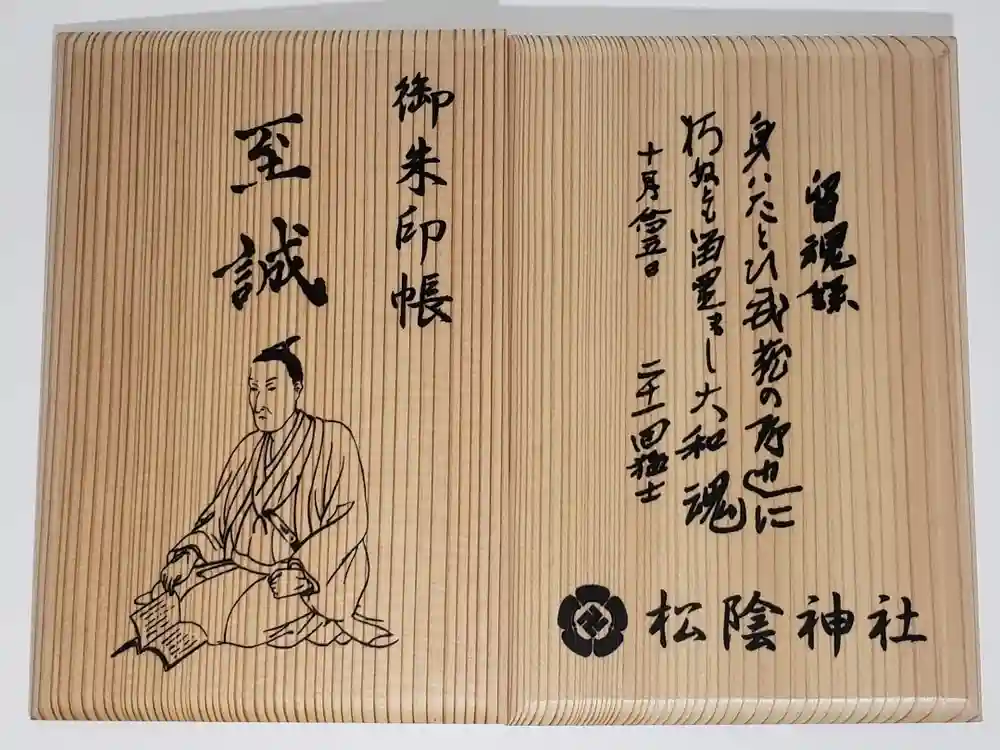 留魂録
身ハたとひ武蔵の野辺に
朽ぬとも留置まし大和魂
十月念五日 二十一回猛士
松陰神社
御朱印帳
至誠